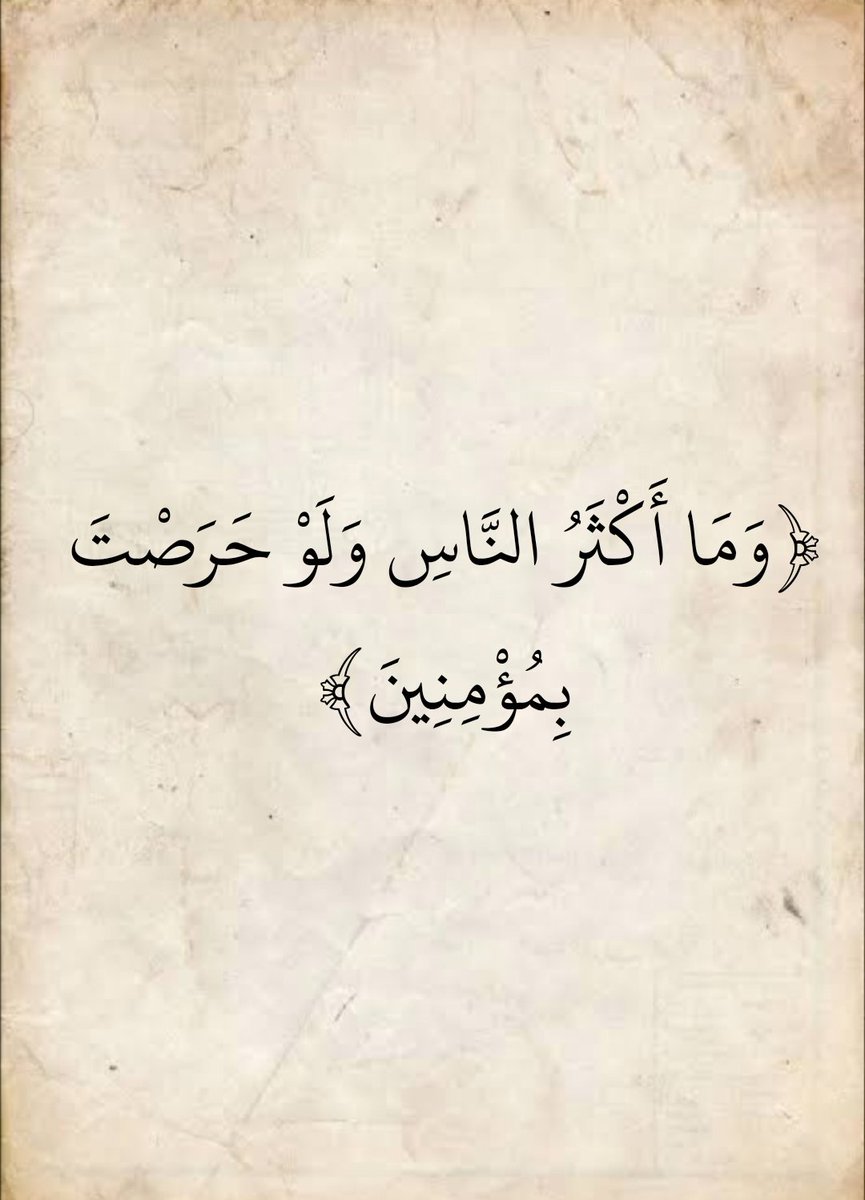 ﴿وَمَا أَكْثَرُ النَّاسِ وَلَوْ حَرَصْتَ
بِمُؤْمِنِينَ﴾